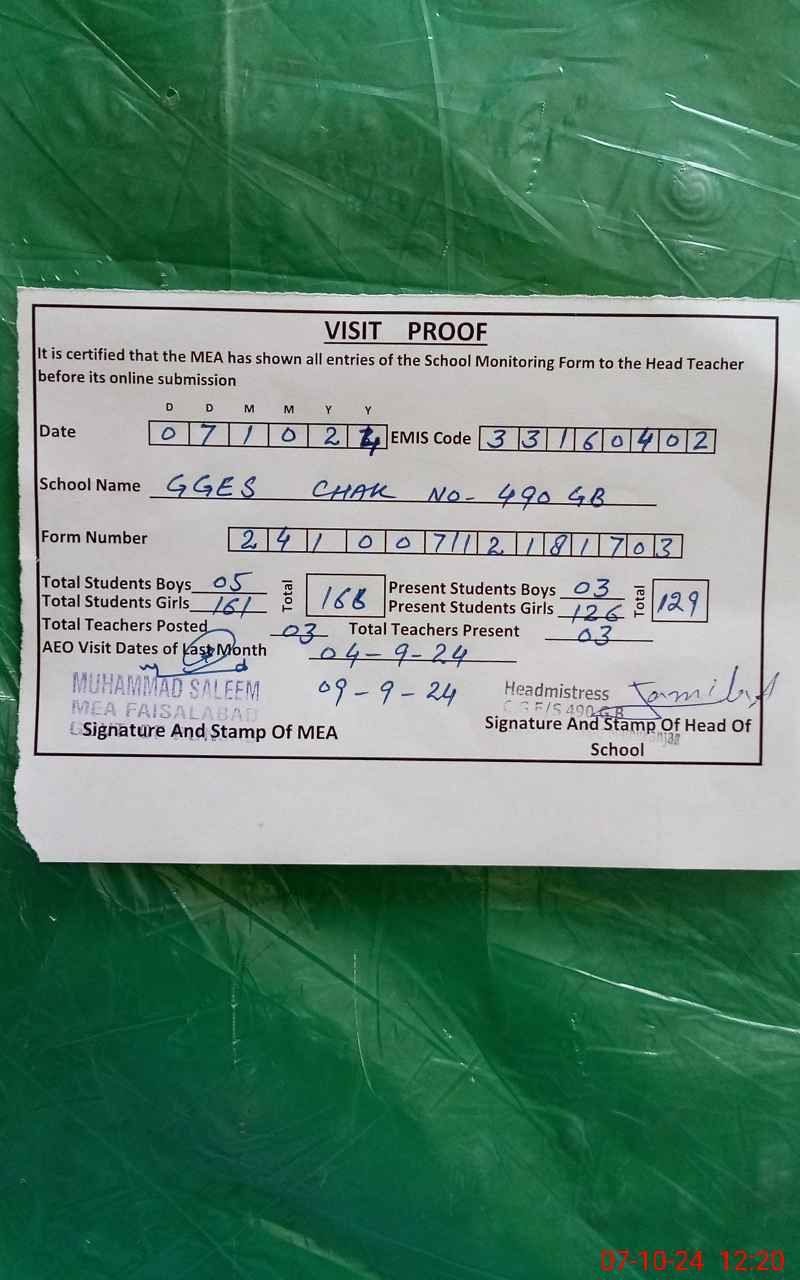 VISIT PROOF
It is certified that the MEA has shown all entries of the School Monitoring Form to the Head Teacher
before its online submission
D D M M Y Y
Date 0 7 1 0 2 4 EMIS Code 3 3 1 6 0 4 0 2
School Name GGES CHAK NO- 490 GB
Form Number 2 4 1 0 0 7 1 2 1 8 1 7 0 3
Total Students Boys 05 Total 166 Present Students Boys 03 Total 129
Total Students Girls 161 Present Students Girls 126
Total Teachers Posted 03 Total Teachers Present 03
AEO Visit Dates of Last Month 04-9-24
09-9-24
MUHAMMAD SALEEM
MEA FAISALABAD
Signature And Stamp Of MEA
Headmistress
490 G.B
Signature And Stamp Of Head Of
School
07-10-24 12:20